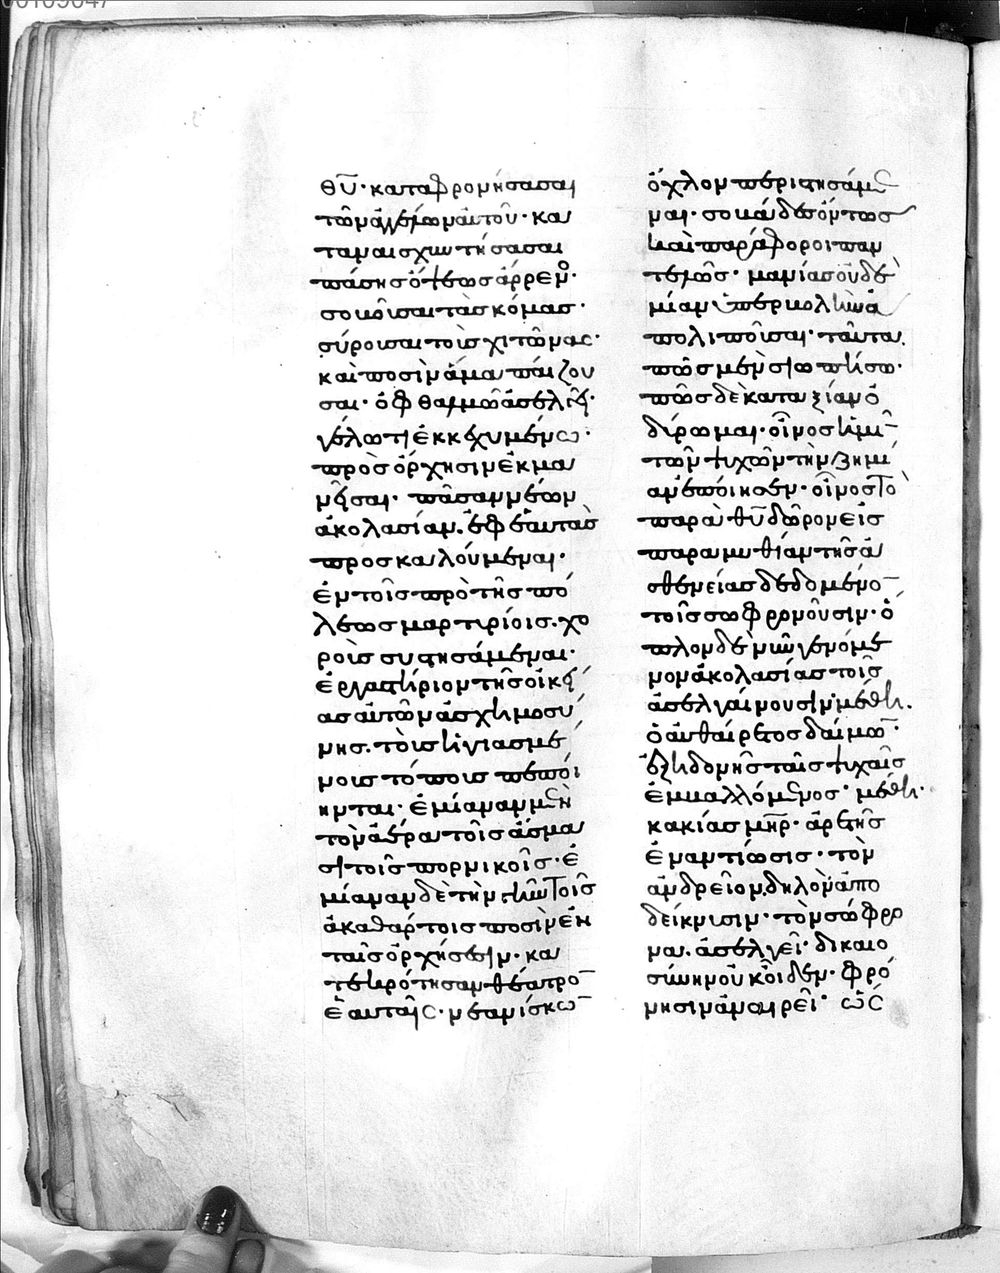 00109047
θῡ· καταφρονήσασαι
τῶν ἀγγέλων αὐτοῦ· κα
ταναισχυντήσασαι
πάσης ὄψεως ἄρρενο·
σοβοῦσαι τὰς κόμας·
σύρουσαι τοὺς χιτῶνας·
καὶ ποσὶν ἅμα παίζου
σαι· ὀφθαλμῶ ἀσελγεῖ·
γέλωτι ἐκκεχυμένω·
πρὸς ὄρχησιν ἐκμα
νεῖσαι· πᾶσαν νέων
ἀκολασίαν ἐφ ἑαυτὰς
προσκαλούμεναι·
ἐν τοῖς πρὸ τῆς πό
λεως μαρτυρίοις· χο
ροὺς συστησάμεναι·
ἐργαστήριον τῆς οἰκεί
ας αὐτῶν ἀσχημοσύ
νης· τοὺς ἡγιασμέ
νους τόπους πεποί
ηνται· ἐμίαναν μὲν
τὸν ἀέρα τοῖς ἄσμα
σι τοῖς πορνικοῖς· ἐ
μίαναν δὲ τὴν γῆν τοῖς
ἀκαθάρτοις ποσὶν ἐν
ταῖς ὀρχήσεσιν· κα
θέατρον
ἑαυταῖς· νεανίσκων
ὄχλον περιστησάμε
ναι· σοβάδες ὄντως
καὶ παράφοροι παν
τελῶς· μανίας οὐδε
μίαν ὑπερβολὴν ἀ
πολιποῦσαι· ταῦτα
πῶς μὲν σιωπήσω·
πῶς δὲ κατ αξίαν ὀ
δύρωμαι· οἶνος ἡμῖ
τῶν ψυχῶν τὴν ζημί
αν ἐποίησεν· οἶνος τὸ
παρὰ θῡ δῶρον εἰς
παραμυθίαν τῆς ἀ
σθενείας δεδομένο
τοῖς σωφρονοῦσιν· ὅ
πλον δὲ νῦν γενόμε
νον ἀκολασίας τοῖς
ἀσελγαίνουσιν· μέθη·
ὁ αὐθαίρετος δαίμω·
ἐξ ἡδονῆς ταῖς ψυχαῖς
ἐμβαλλόμενος· μέθη·
κακίας μηρ· ἀρετῆς
ἐναντίωσις· τὸν
ἀνδρεῖον δηλὸν ἀπο
δείκνυσιν· τὸν σώφρο
να ἀσελγεῖ· δικαιο
σύνην οὐκ οἶδεν· φρό
νησιν ἀναιρεῖ· ὡς